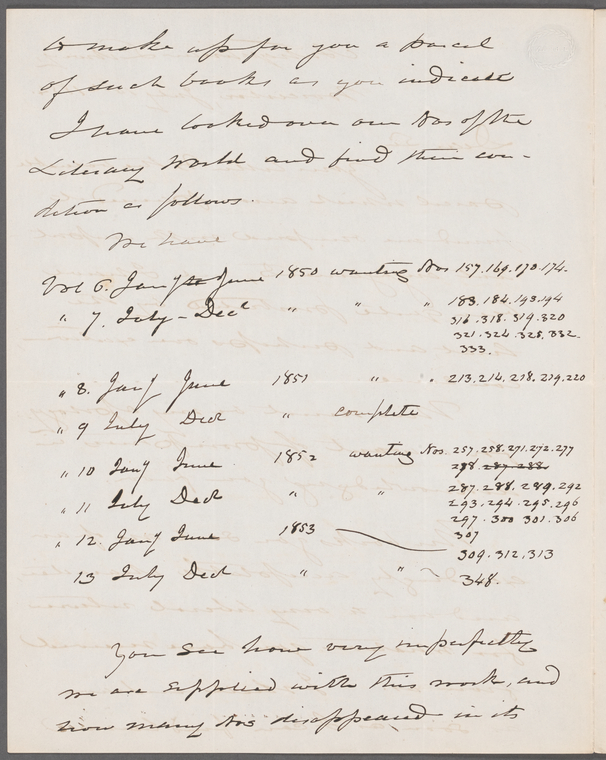 to make up for you a parcel
of such books as you indicate
I have looked over our Nos of the
Literary World and find their con-
dition as follows.
We have
Vol 6. Jany to June 1850 wanting Nos 157.169.170.174.
" 7. July - Decr " " " 183.184.193.194
316.318.319.320
321.324.328.332.
333.
" 8. Jany June 1851 " " 213.214.218.219.220
" 9 July Decr " complete
" 10 Jany June 1852 wanting Nos. 257.258.271.272.277
287.288.289.292
" 11 July Decr " " 293.294.295.296
297.300 301.306
307
" 12. Jany June 1853 309.312.313
13 July Decr " " 348.
You see how very imperfectly
we are supplied with this work, and
how many Nos disappeared in its